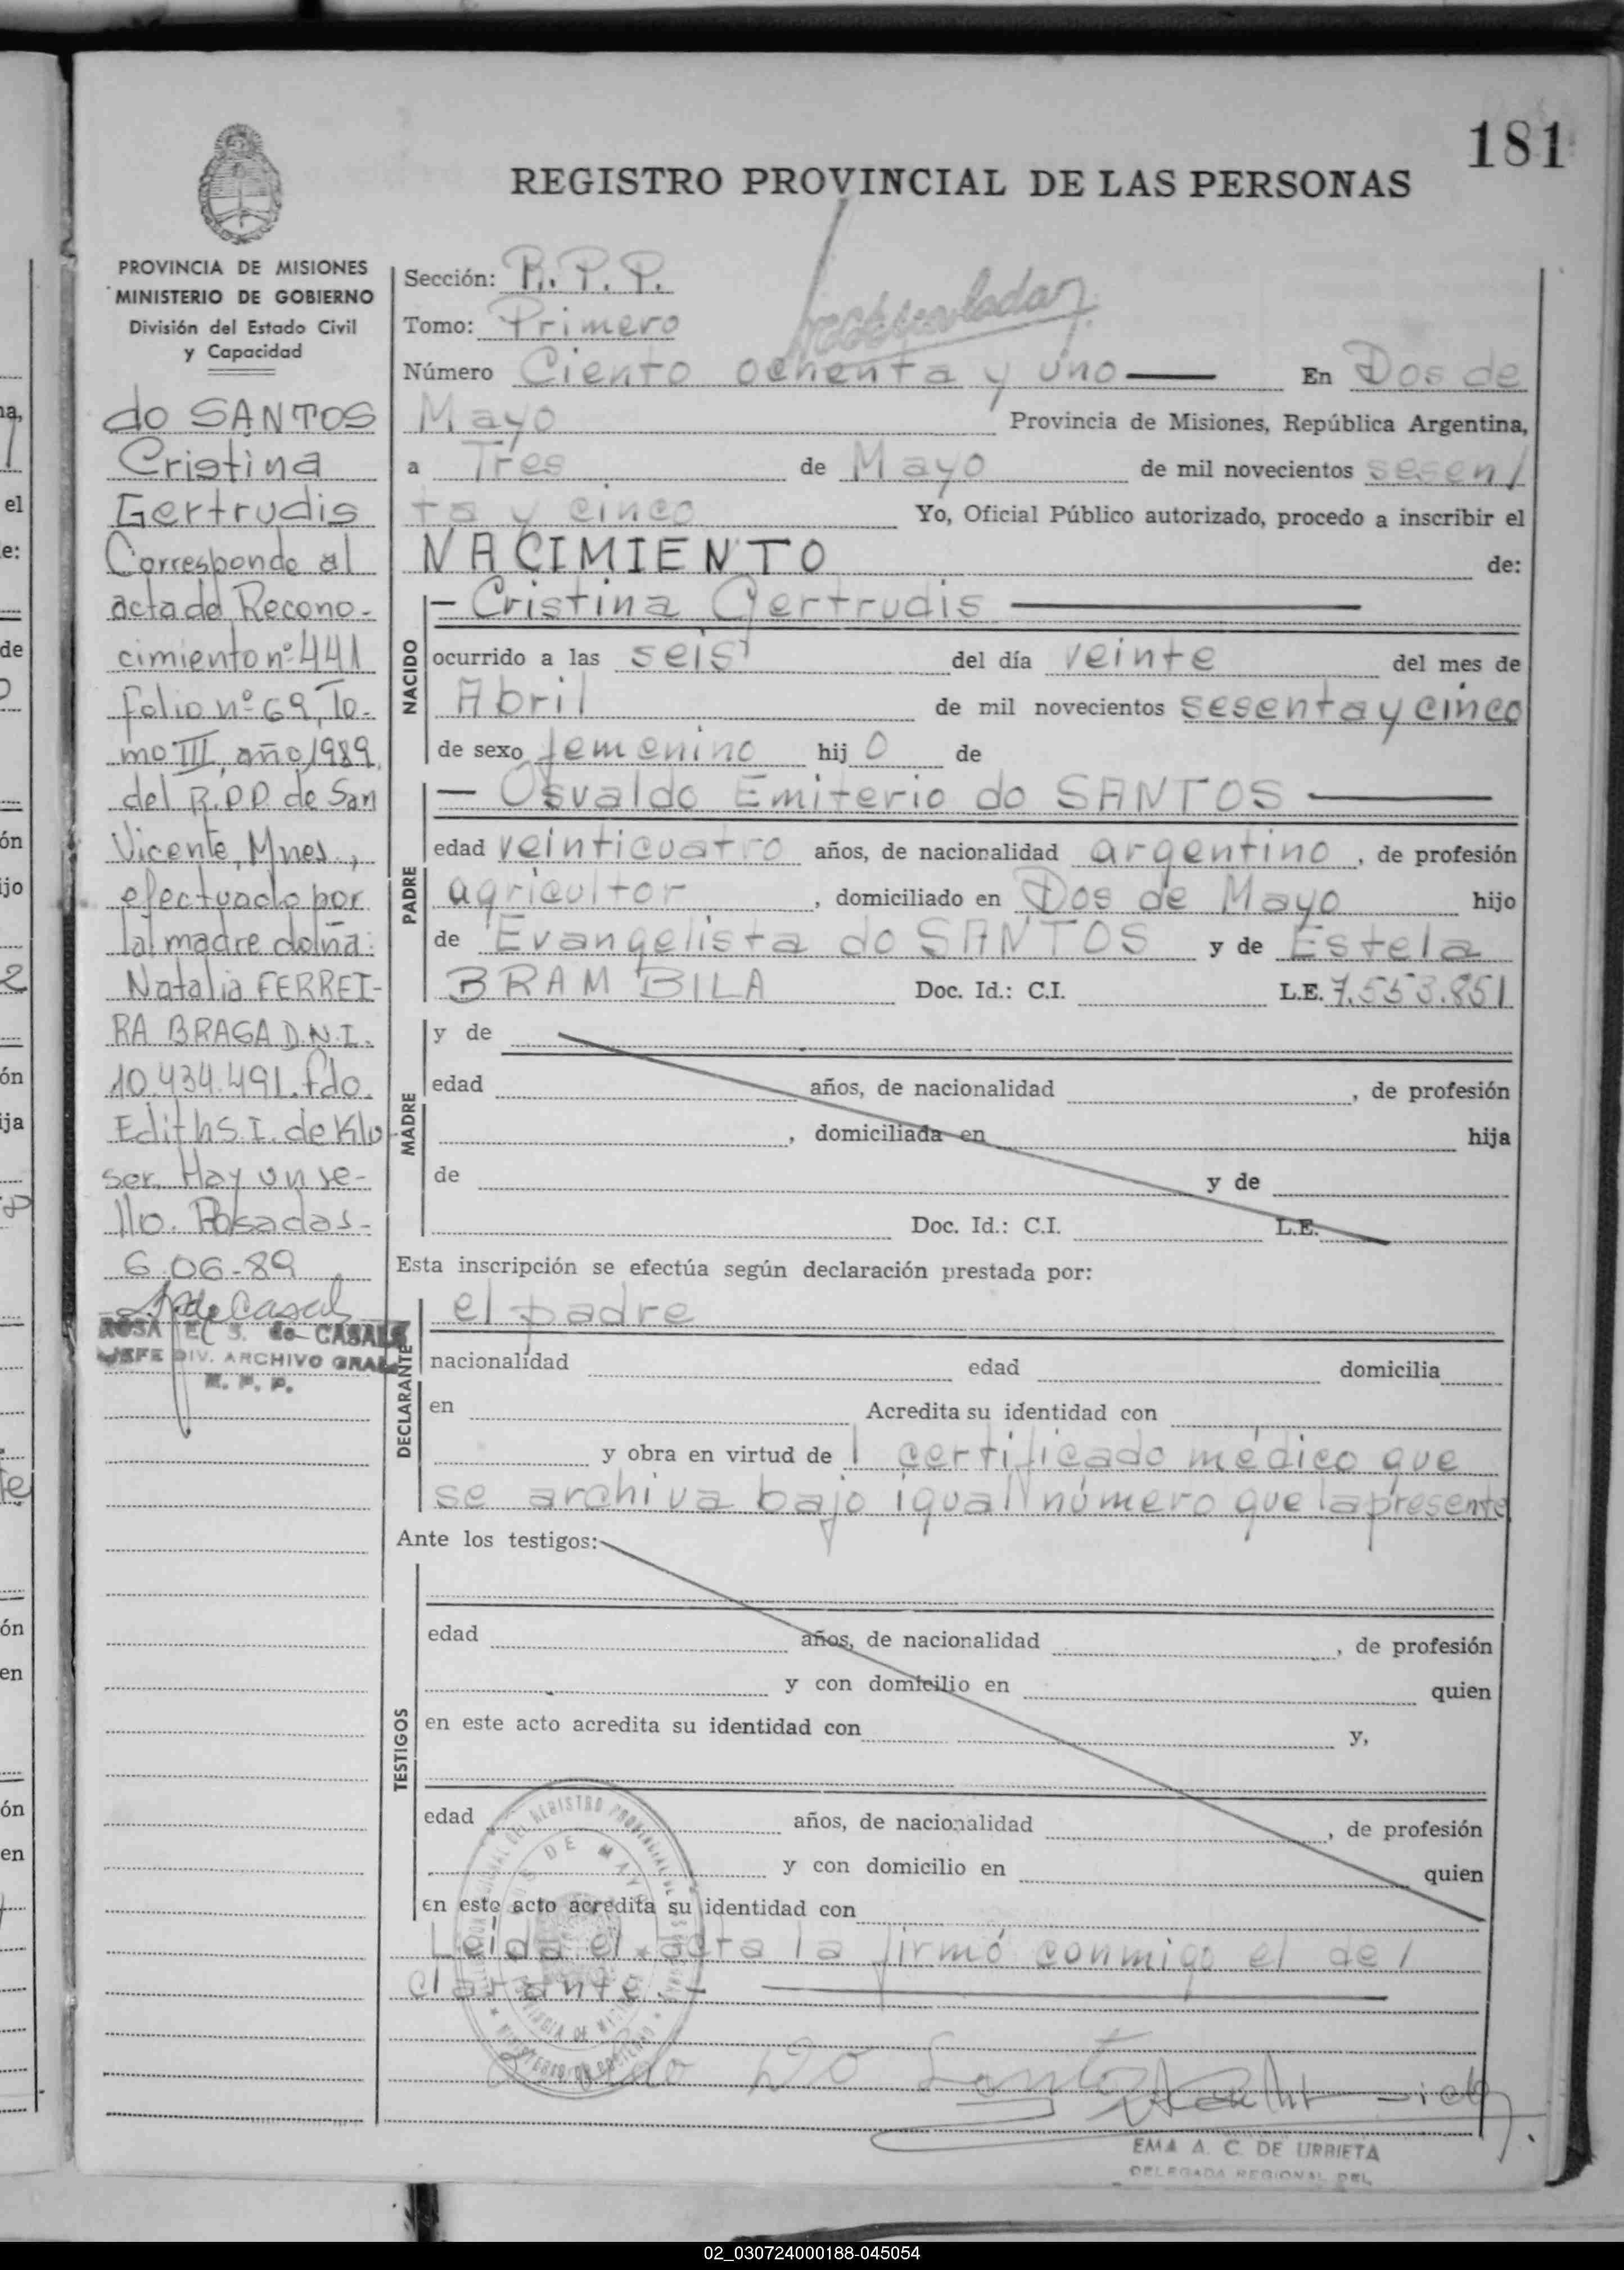 181
REGISTRO PROVINCIAL DE LAS PERSONAS
PROVINCIA DE MISIONES
MINISTERIO DE GOBIERNO
División del Estado Civil
y Capacidad
do SANTOS
Cristina
Gertrudis
Corresponde al
acta de Recono-
cimiento nº 441
folio nº 69, To-
mo III, año 1989,
del R.P.P. de San
Vicente, Mnes.,
efectuado por
la madre doña:
Natalia FERREI-
RA BRAGA D.N.I.
10.434.491. fdo.
Edith S. I. de Klu
ser. Hay un se-
llo. Posadas-
6.06-89
ROSA E. S. de CASALS
JEFE DIV. ARCHIVO GRAL
R. P. P.
Sección: R. P. P.
Tomo: Primero
Número Ciento ochenta y uno — En Dos de
Mayo Provincia de Misiones, República Argentina,
a Tres de Mayo de mil novecientos sesen/
ta y cinco Yo, Oficial Público autorizado, procedo a inscribir el
NACIMIENTO de:
NACIDO
— Cristina Gertrudis —
ocurrido a las seis del día veinte del mes de
Abril de mil novecientos sesenta y cinco
de sexo femenino hij o de
PADRE
— Osvaldo Emiterio do SANTOS —
edad veinticuatro años, de nacionalidad argentino, de profesión
agricultor, domiciliado en Dos de Mayo hijo
de Evangelista do SANTOS y de Estela
BRAMBILA Doc. Id.: C.I. L.E. 7.553.851
MADRE
y de
edad años, de nacionalidad , de profesión
, domiciliada en hija
de y de
Doc. Id.: C.I. L.E.
Esta inscripción se efectúa según declaración prestada por:
DECLARANTE
el padre
nacionalidad edad domicilia
en Acredita su identidad con
y obra en virtud de 1 certificado médico que
se archiva bajo igual número que la presente
Ante los testigos:
TESTIGOS
edad años, de nacionalidad , de profesión
y con domicilio en quien
en este acto acredita su identidad con y,
edad años, de nacionalidad , de profesión
y con domicilio en quien
en este acto acredita su identidad con
Leída el acta la firmó conmigo el de/
clarante.-
EMA A. C. DE URRIETA
DELEGADA REGIONAL DEL
02_030724000188-045054